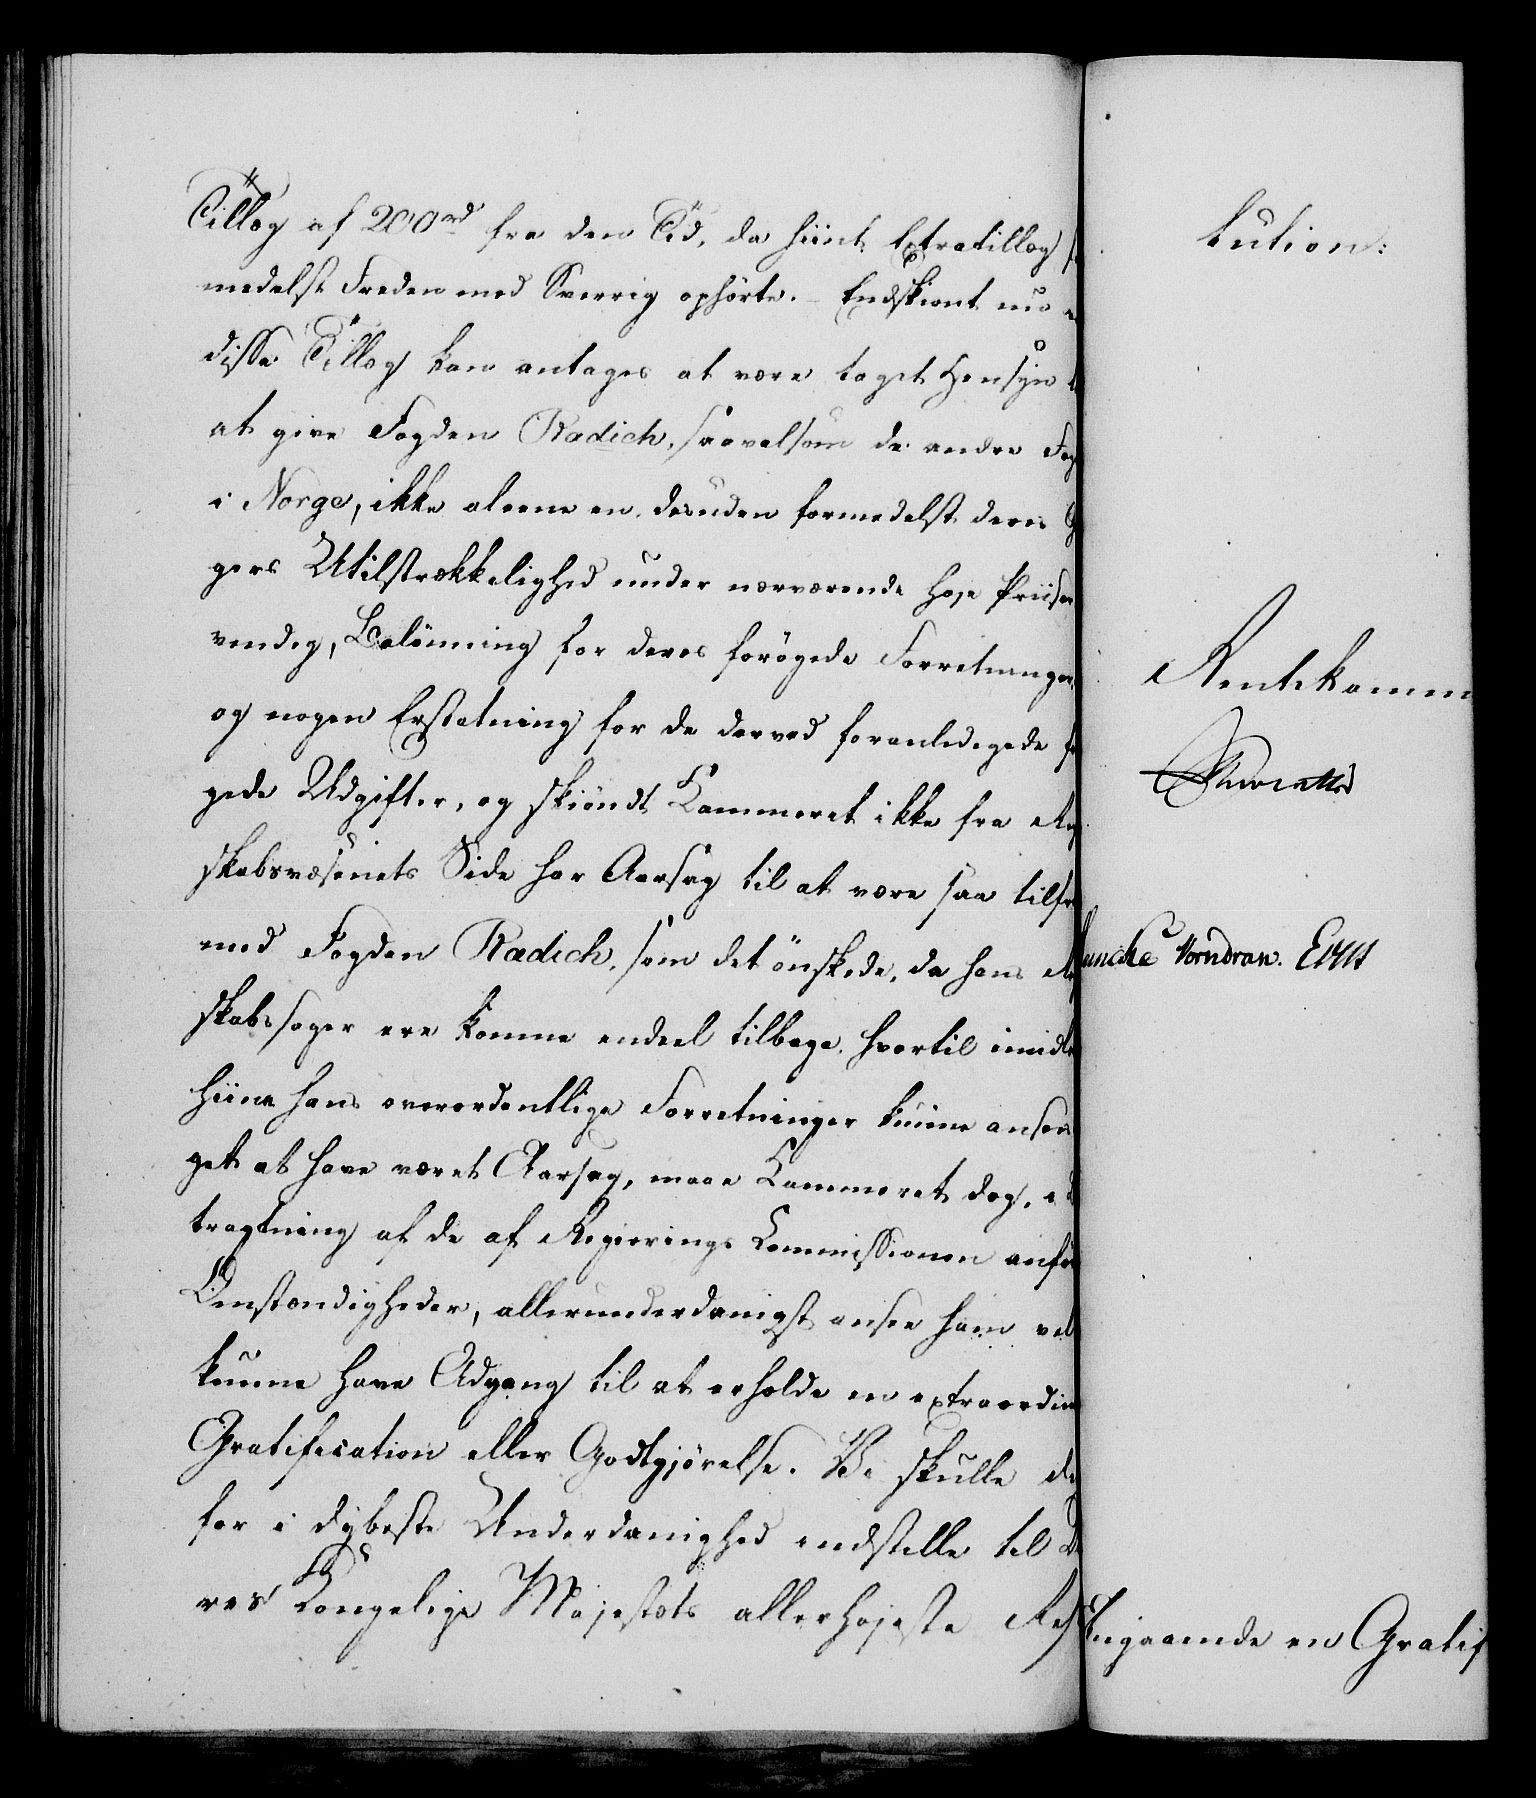 Tillæg af 200 rd fra den Tid, da hiint Extratillæg
medelst Freden med Sverrig ophörte. Endskiönt nu
disse Tillæg kan antages at være taget Hensyn
at give Fogden Radich, saavelsom de andre Fog
i Norge, ikke aleene en, desuden formedelst deres
gers Utilstrækkelighed under nærværende høje Priiser
vendig, Belönning for deres forögede Forretninger,
og nogen Erstatning for de derved foranledigede
gede Udgifter, og skiöndt Kammeret ikke fra Reg
skabsvæsenets Side har Aarsag til at være saa tilfr
med Fogden Radich, som det önskede, da hans Reg
skabssager ere komne endeel tilbage, hvortil imidle
hiine hans overordentlige Forretninger kunne ansees
get at have været Aarsag, maae Kammeret dog, i
tragtning af de af Regierings Commissionen anför
Omstændigheder, allerunderdanigst ansee ham vel
kunne have Adgang til at erholde en extraordin
Gratification eller Godtgjörelse. Vi skulle de
for i dybeste Underdanighed indstille til De
res Kongelige Majestæts allerhøjeste Reso
lution:
Rentekamm
Vorndran.
Angaaende en Gratif